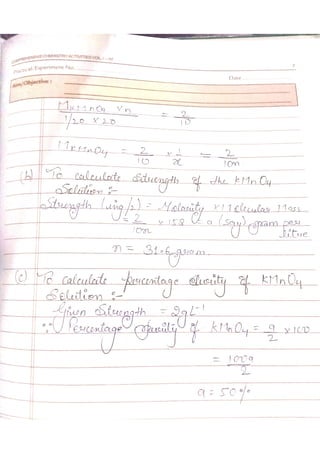 COMPREHENSIVE CHEMISTRY ACTIVITIES VOL. I - XI
7
Practical Experiment No.
Date
Aim/Objective :
MKMnO4 x n / 1/20 x 20 = 2/10
MKMnO4 = 2/10 x 1/x = 2/10n
(b) To calculate Strength of the KMnO4
Solution :-
Strength (in g/l) = Molarity x Molecular Mass
= 2/10n x 158 = a (say) gram per
litre
n = 31.6 gram.
(c) To calculate percentage purity of KMnO4
Solution :-
Given Strength = 2gL-1
∵ Percentage purity of KMnO4 = a/2 x 100
= 100a/2
a = 50%